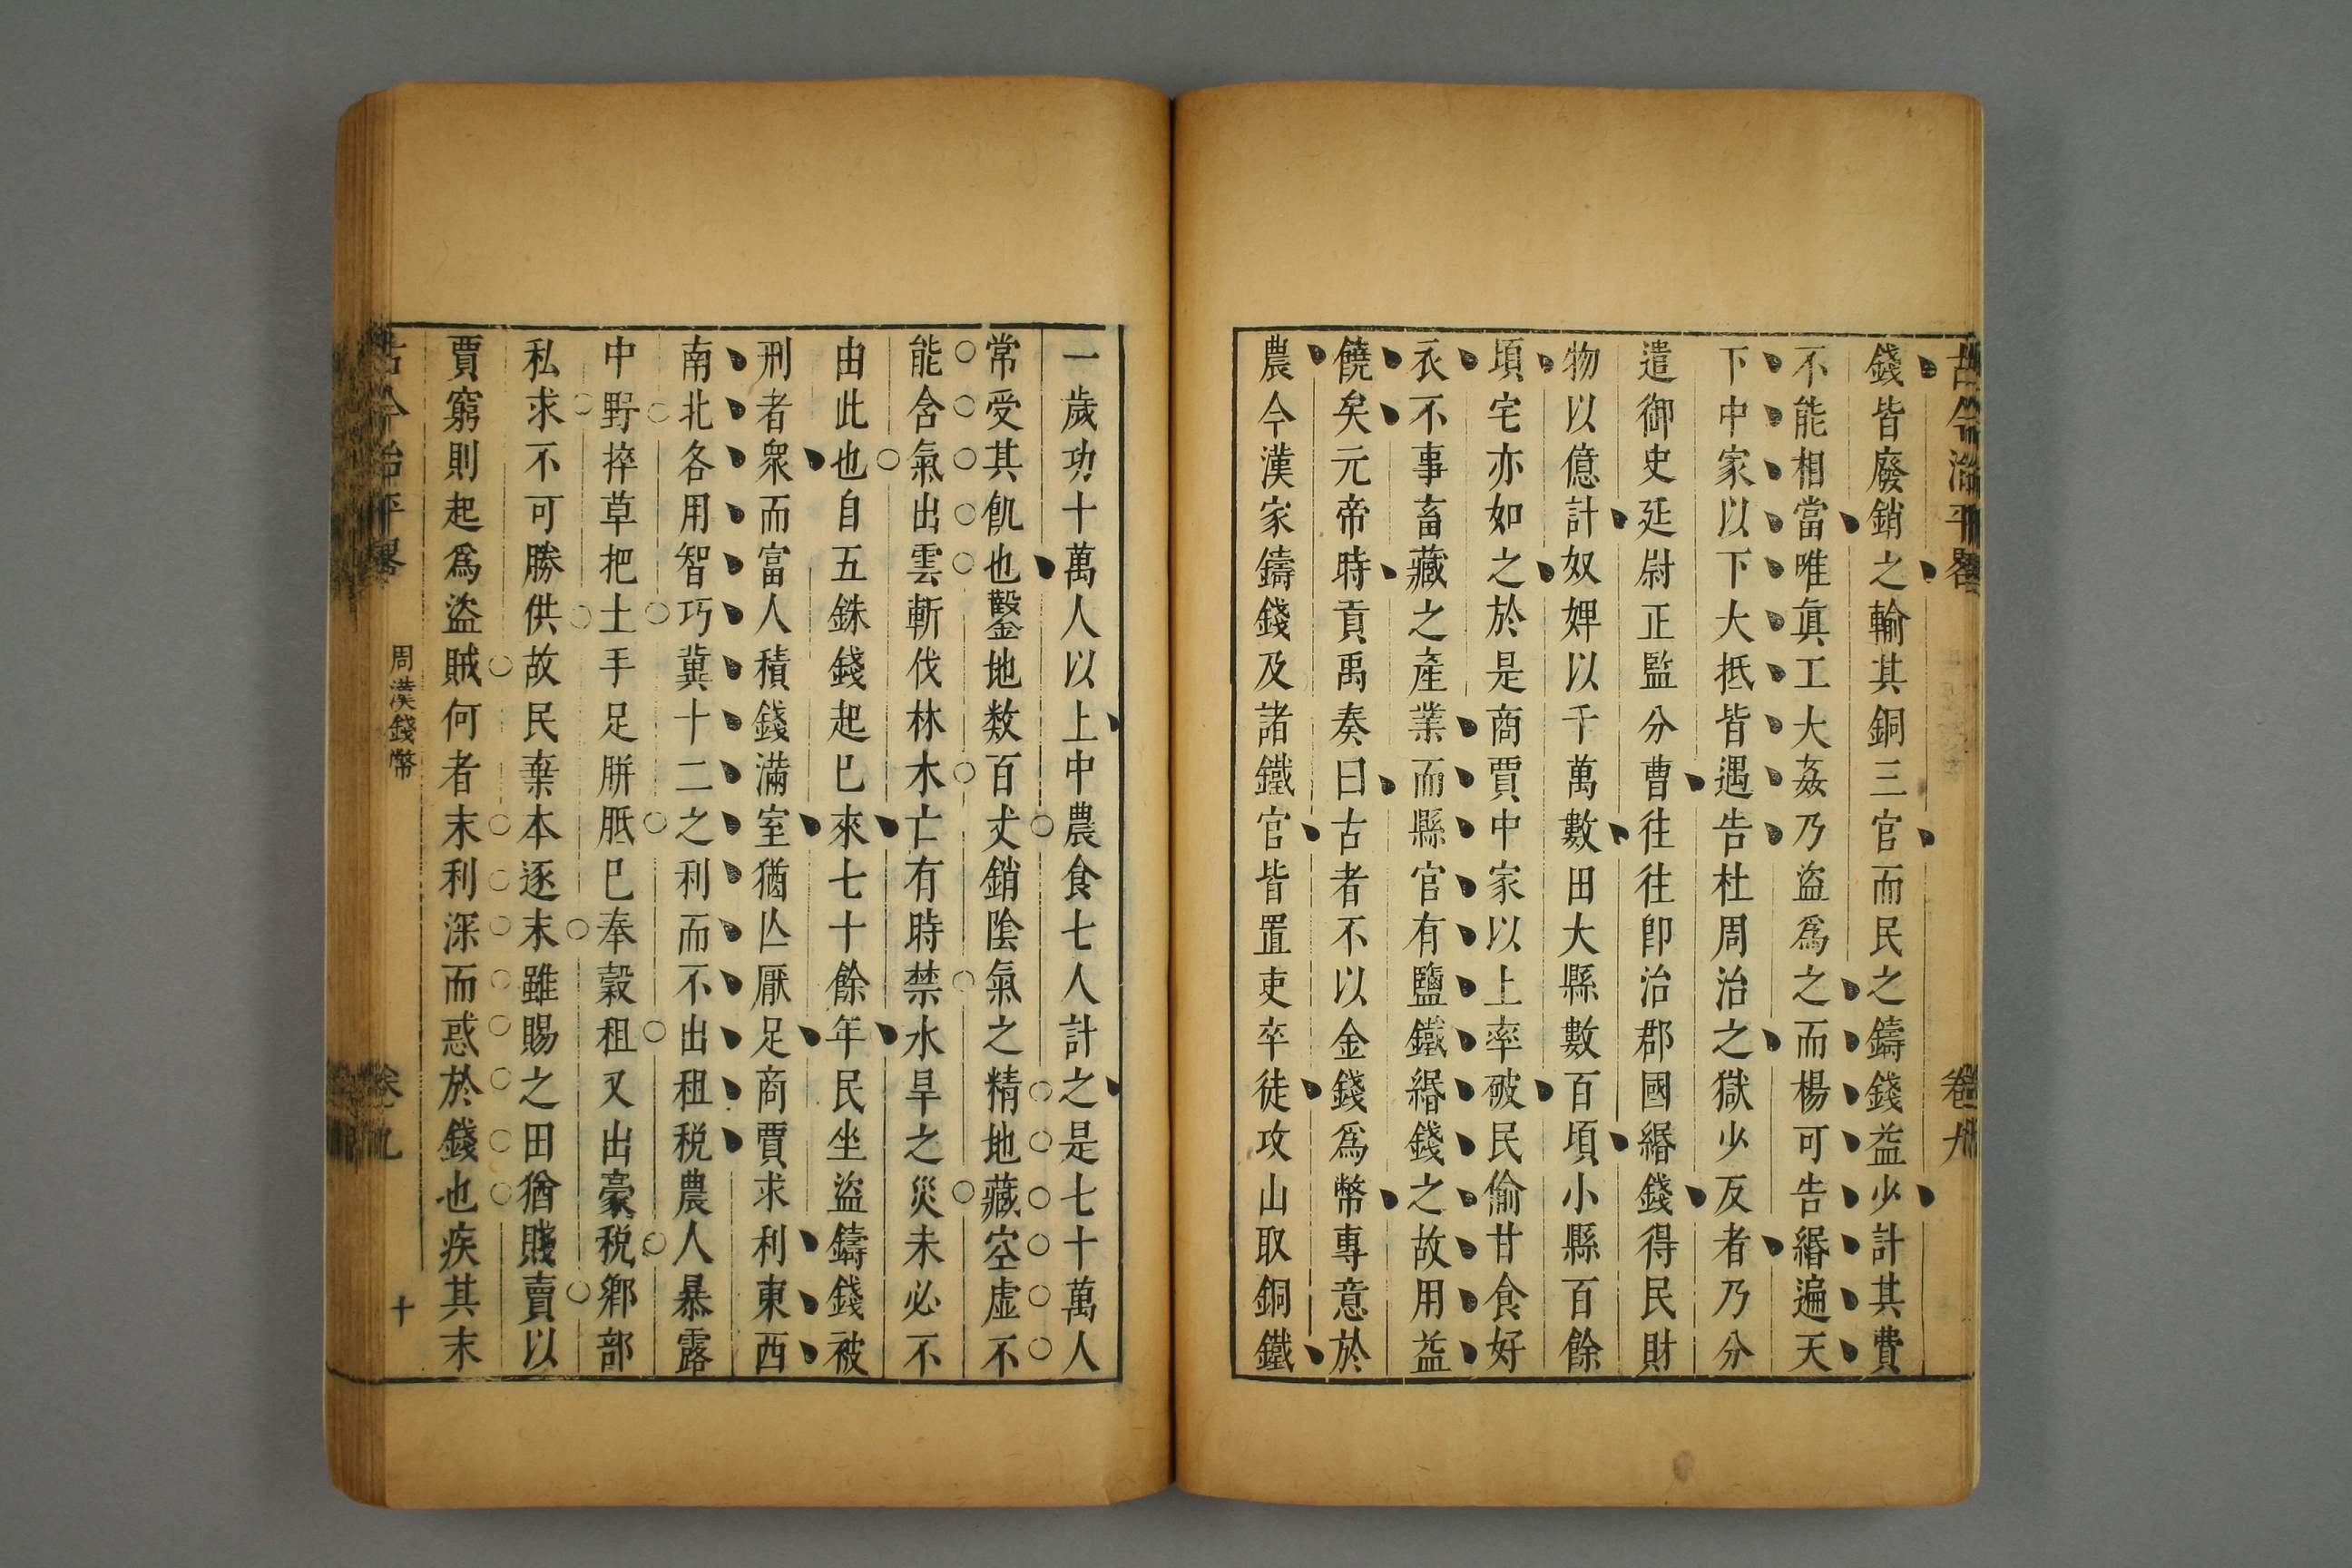 古今治平畧 卷九
錢皆廢銷之輸其銅三官而民之鑄錢益少計其費
不能相當唯眞工大姦乃盜爲之而楊可告緡遍天
下中家以下大抵皆遇告杜周治之獄少反者乃分
遣御史延尉正監分曹往往卽治郡國緡錢得民財
物以億計奴婢以千萬數田大縣數百頃小縣百餘
頃宅亦如之於是商賈中家以上率破民偷甘食好
衣不事畜藏之產業而縣官有鹽鐵緡錢之故用益
饒矣元帝時貢禹奏曰古者不以金錢爲幣專意於
農今漢家鑄錢及諸鐵官皆置吏卒徒攻山取銅鐵
一歲功十萬人以上中農食七人計之是七十萬人
常受其飢也鑿地数百丈銷陰氣之精地藏空虛不
能含氣出雲斬伐林木亡有時禁水旱之災未必不
由此也自五銖錢起已來七十餘年民坐盜鑄錢被
刑者衆而富人積錢滿室猶亾厭足商賈求利東西
南北各用智巧冀十二之利而不出租税農人暴露
中野捽草把土手足胼胝已奉穀租又出豪税鄉部
私求不可勝供故民棄本逐末雖賜之田猶賤賣以
賈窮則起爲盜賊何者末利深而惑於錢也疾其末
古今治平畧 周漢錢幣 卷九 十